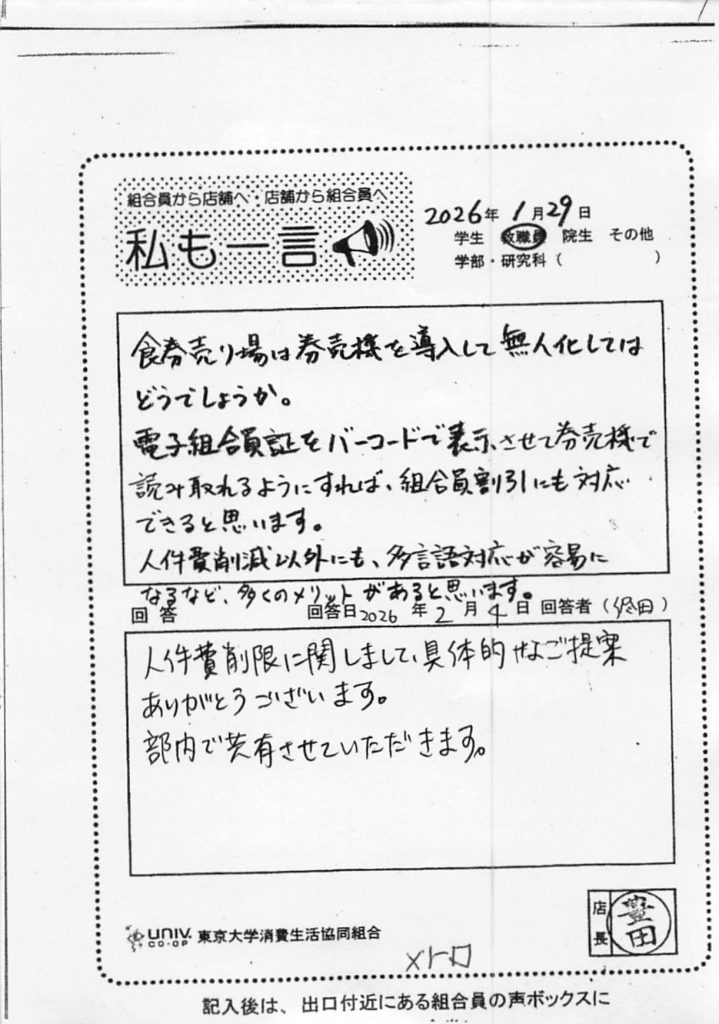 組合員から店舗へ・店舗から組合員へ
私も一言
2026年 1月29日
学生 教職員 院生 その他
学部・研究科（ ）
食券売り場は券売機を導入して無人化しては
どうでしょうか。
電子組合員証をバーコードで表示させて券売機で
読み取れるようにすれば、組合員割引にも対応
できると思います。
人件費削減以外にも、多言語対応が容易に
なるなど、多くのメリットがあると思います。
回 答 回答日2026年2月4日 回答者（終田）
人件費削限に関しまして、具体的なご提案
ありがとうございます。
部内で共有させていただきます。
店長
豊田
UNIV. CO-OP 東京大学消費生活協同組合
メトロ
記入後は、出口付近にある組合員の声ボックスに